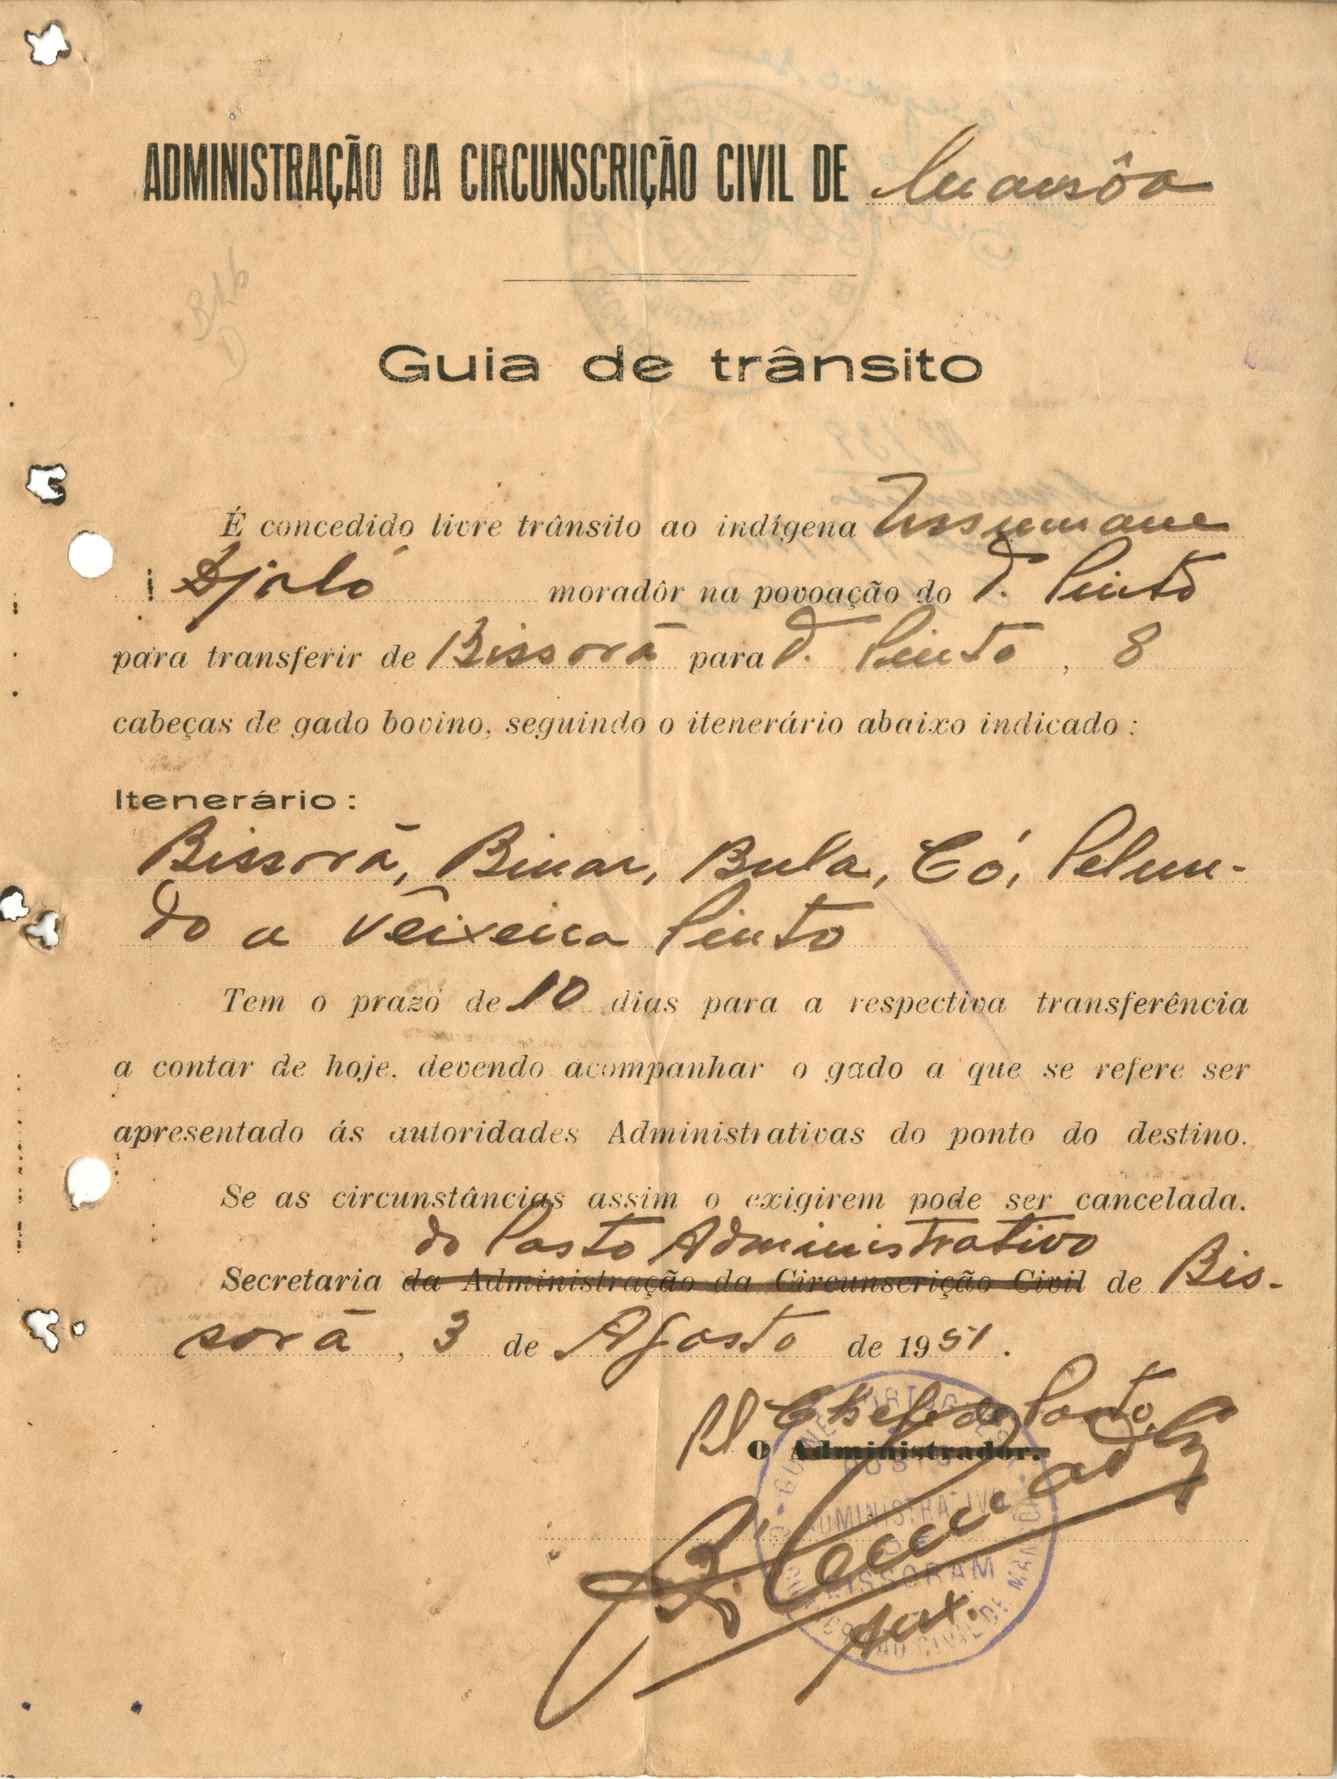 ADMINISTRAÇÃO DA CIRCUNSCRIÇÃO CIVIL DE Mansôa
Guia de trânsito
É concedido livre trânsito ao indígena Ussumane
Djaló moradôr na povoação do T. Pinto
para transferir de Bissorã para T. Pinto, 8
cabeças de gado bovino, seguindo o itenerário abaixo indicado:
Itenerário:
Bissorã, Binar, Bula, Có, Pelun-
do a Teixeira Pinto
Tem o prazo de 10 dias para a respectiva transferência
a contar de hoje, devendo acompanhar o gado a que se refere ser
apresentado ás autoridades Administrativas do ponto do destino.
Se as circunstâncias assim o exigirem pode ser cancelada.
do Posto Administrativo
Secretaria da Administração da Circunscrição Civil de Bis-
sorã, 3 de Agosto de 1951.
Chefe de Posto,
O Administrador.
ADMINISTRATIVO
DE
BISSORAM
Aux.